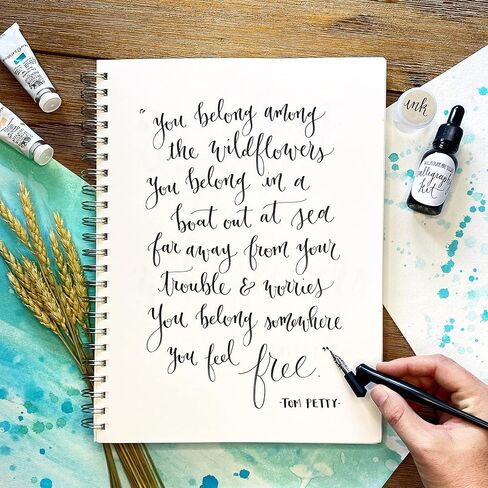 "You belong among
the wildflowers
You belong in a
boat out at sea
far away from your
trouble & worries
You belong somewhere
you feel free."
-TOM PETTY-
ink
Calligraphy
Kit